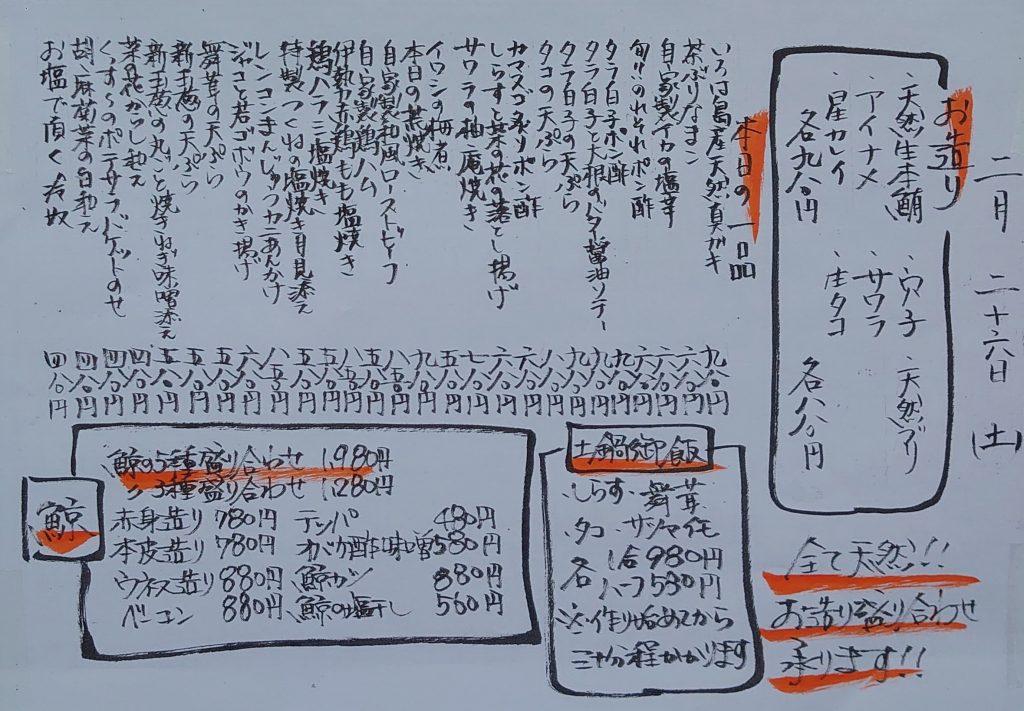 二月 二十六日 (土)
お造り
・天然生本鮪 ・穴子 天然ブリ
・アイナメ ・サワラ
・星カレイ ・生タコ
各九八〇円 各八八〇円
全て天然!!!
お造り盛り合わせ
承ります!!
本日の一品
いろは島産天然真ガキ 九八〇円
茶ぶりなまこ 六八〇円
自家製イカの塩辛 六八〇円
旬!!のれそれポン酢 六八〇円
タラ白子ポン酢 九八〇円
タラ白子と大根のバタ醤油ソテー 九八〇円
タラ白子の天ぷら 九八〇円
タコの天ぷら 八八〇円
カマスゴ炙りポン酢 六八〇円
しらすと菜の花の落とし揚げ 六八〇円
サワラの柚庵焼き 七八〇円
イワシの梅煮 五八〇円
本日の煮焼き 九八〇円
自家製和風ローストビーフ 八五〇円
自家製鶏ハム 五八〇円
伊勢赤鶏もも塩焼き 八五〇円
鶏ハラミ塩焼き 五八〇円
特製つくねの塩焼き月見添え 五八〇円
レンコンまんじゅうカニあんかけ 八八〇円
ジャコと若ゴボウのかき揚げ 六八〇円
舞茸の天ぷら 五八〇円
新玉葱の天ぷら 五八〇円
新玉葱の丸ごと焼きねぎ味噌添え 五八〇円
菜の花からし和え 四八〇円
くんす〜のポテサラバゲットのせ 四八〇円
胡麻菊菜の白和え 四八〇円
お塩で頂く冷奴 四八〇円
土鍋御飯
・しらす・舞茸
・タコ・サツマイモ
各 1合980円
ハーフ530円
※作り始めてから
三十分程かかります
鯨
鯨の5種盛り合わせ 1,980円
〃3種盛り合わせ 1,280円
赤身造り 780円 テッパ 480円
本皮造り 780円 オバケ酢味噌 580円
ウネス造り 880円 鯨カツ 880円
ベーコン 880円 鯨の塩干し 560円